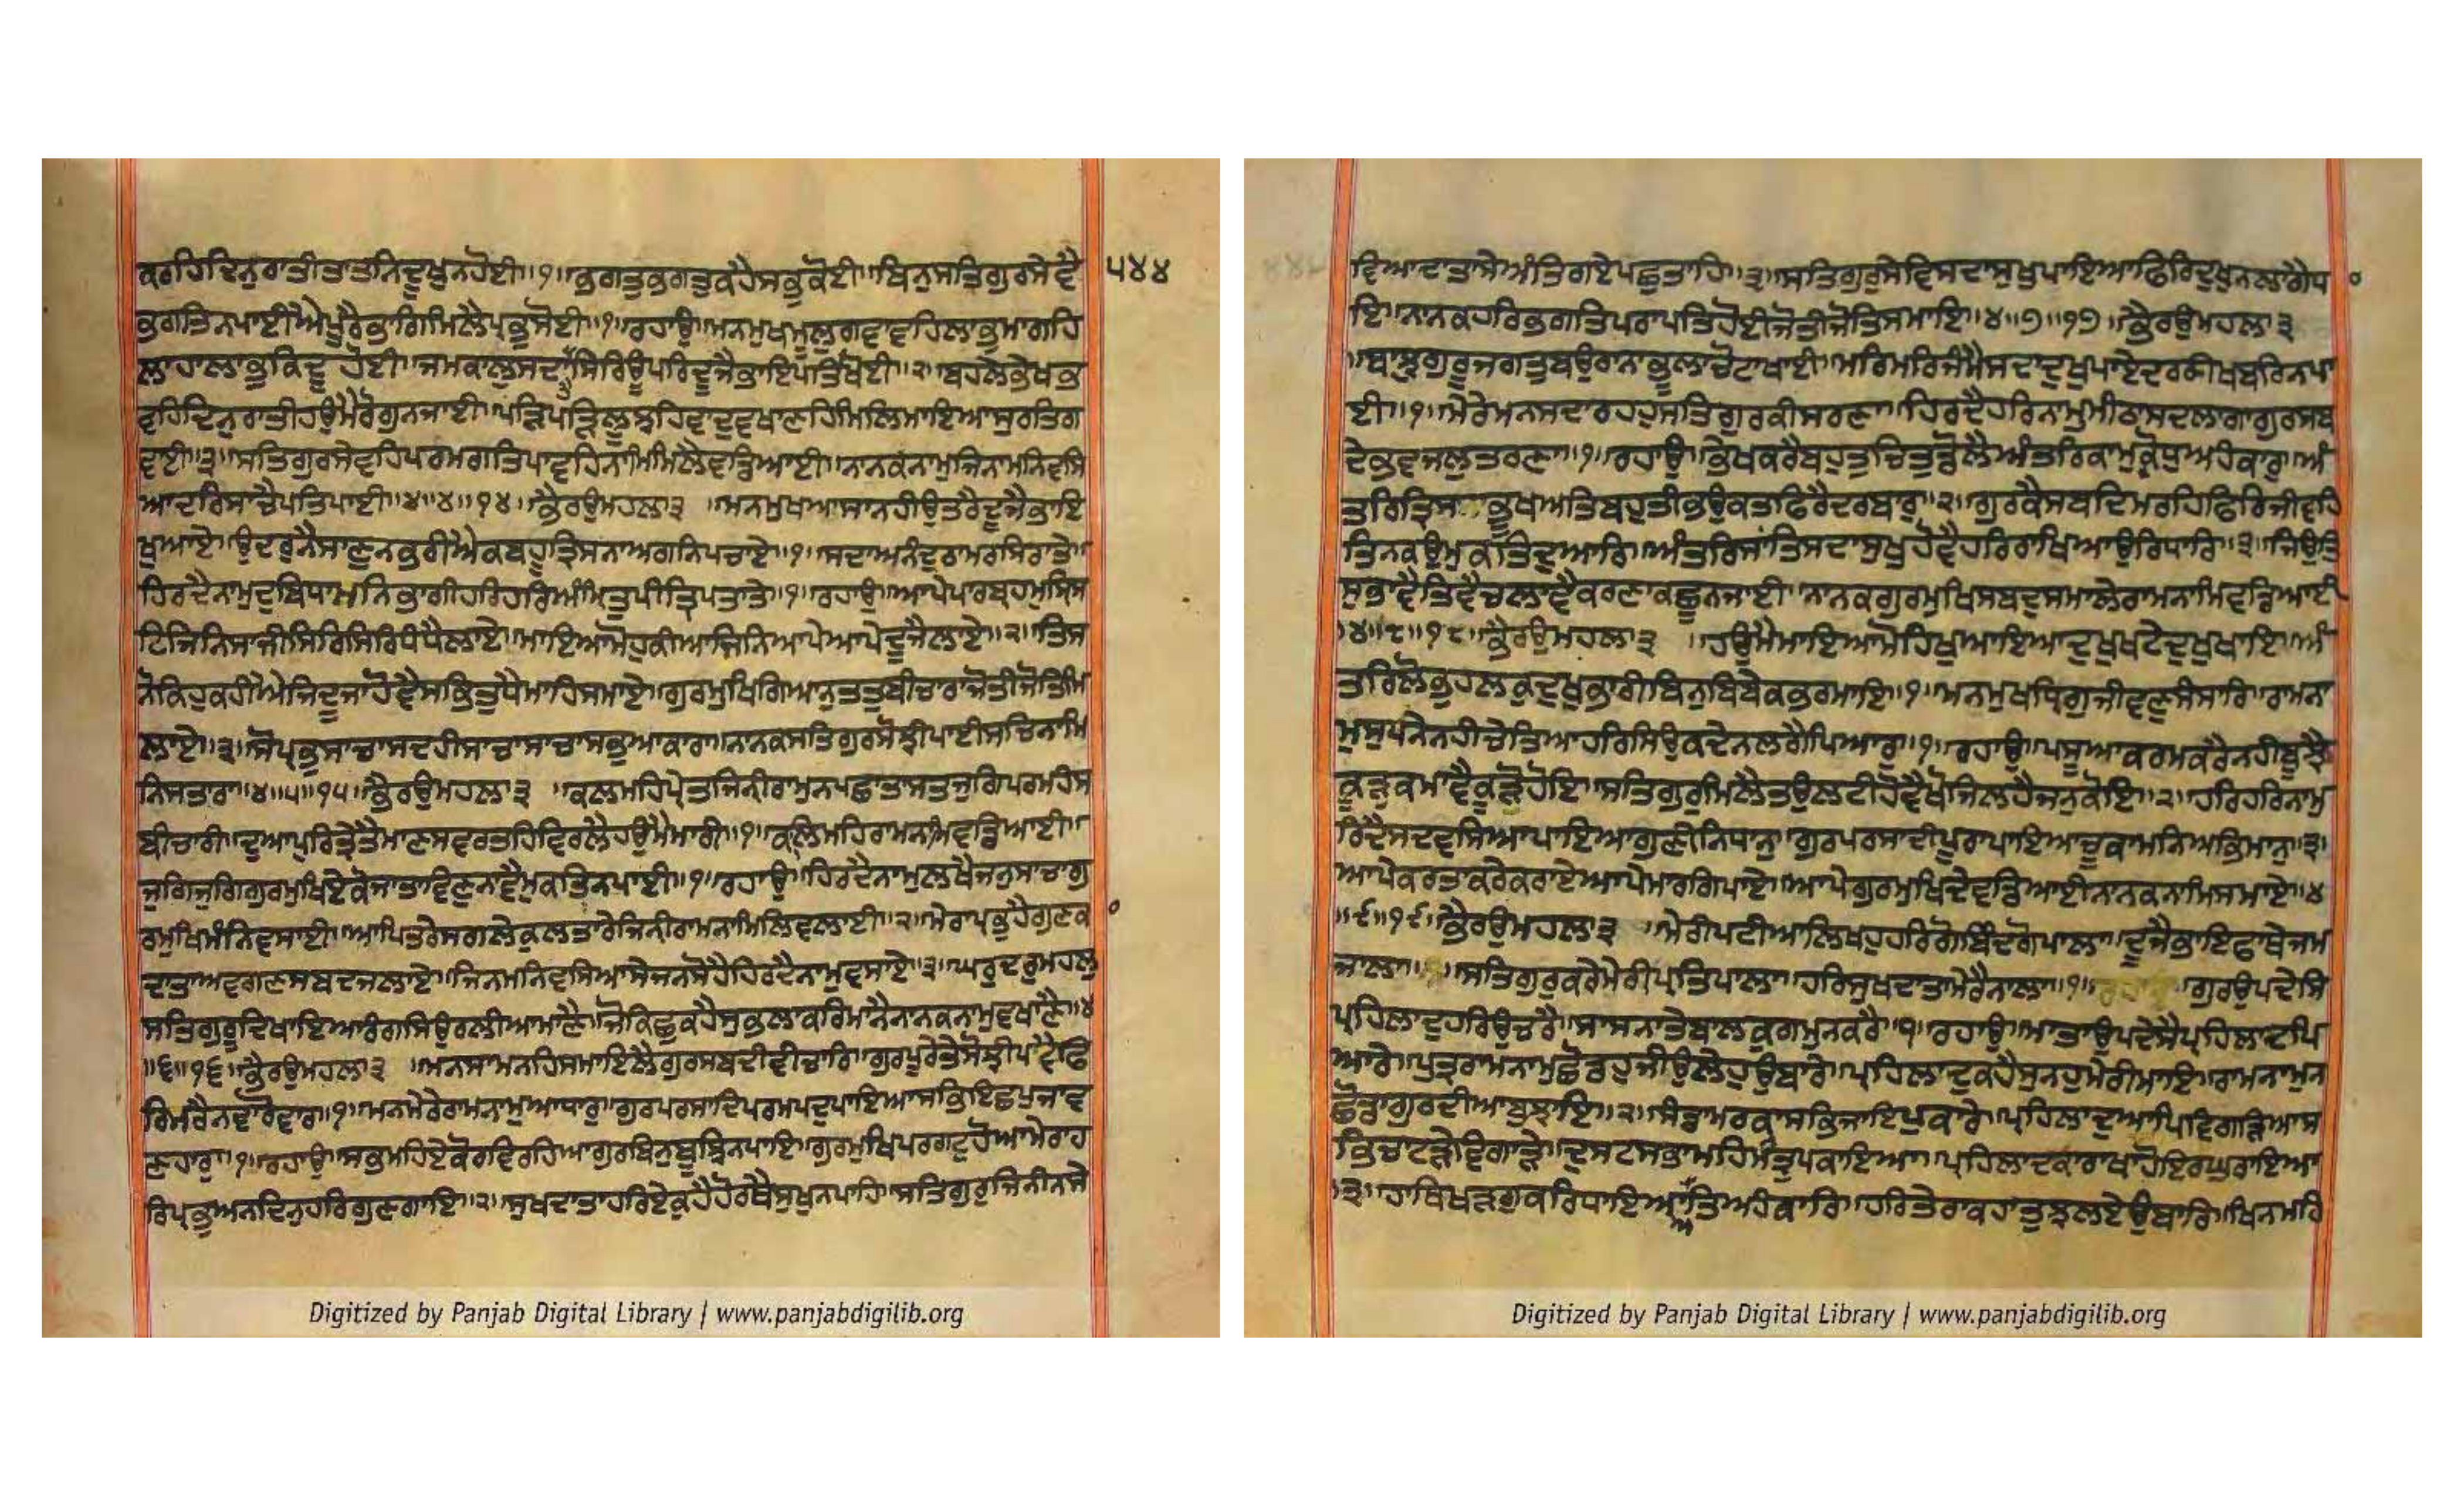 ਕਰਹਿਦਿਨੁਰਾਤੀਤਾਤਨਿਦੂਖੁਨਹੋਈ॥੧॥ਭਗਤੁਭਗਤੁਕਹੈਸਭੁਕੋਈ॥ਬਿਨੁਸਤਿਗੁਰਸੇਵੈ
੫੪੪
ਭਗਤਿਨਪਾਈਐਪੂਰੈਭਾਗਿਮਿਲੈਪ੍ਰਭੁਸੋਈ॥੧॥ਰਹਾਉ॥ਮਨਮੁਖਮੂਲੁਗਵਾਵਹਿਲਾਭੁਮਾਗਹਿ
ਲਾਹਾਲਾਭੁਕਿਦੂਹੋਈ॥ਜਮਕਾਲੁਸਦਾਸਿਰਿਊਪਰਿਦੂਜੈਭਾਇਪਤਿਖੋਈ॥੨॥ਬਹਲੇਭੇਖਭ
ਵਹਿਦਿਨੁਰਾਤੀਹਉਮੈਰੋਗੁਨਜਾਈ॥ਪੜਿਪੜਿਲੂਝਹਿਵਾਦੁਵਖਾਣਹਿਮਿਲਿਮਾਇਆਸੁਰਤਿਗ
ਵਾਈ॥੩॥ਸਤਿਗੁਰਸੇਵਹਿਪਰਮਗਤਿਪਾਵਹਿਨਾਮਿਮਿਲੈਵਡਿਆਈ॥ਨਾਨਕਨਾਮੁਜਿਨਾਮਨਿਵਸਿ
ਆਦਰਿਸਾਚੈਪਤਿਪਾਈ॥੪॥੪॥੧੪॥ਭੈਰਉਮਹਲਾ੩॥ਮਨਮੁਖਆਸਾਨਹੀਉਤਰੈਦੂਜੈਭਾਇ
ਖੁਆਏ॥ਉਦਰੁਨੈਸਾਣੁਨਭਰੀਐਕਬਹੂਤ੍ਰਿਸਨਾਅਗਨਿਪਚਾਏ॥੧॥ਸਦਾਅਨੰਦੁਰਾਮਰਸਿਰਾਤੇ॥
ਹਿਰਦੈਨਾਮੁਦੁਬਿਧਾਮਨਿਭਾਗੀਹਰਿਹਰਿਅੰਮ੍ਰਿਤੁਪੀਤ੍ਰਿਪਤਾਤੇ॥੧॥ਰਹਾਉ॥ਆਪੇਪਾਰਬ੍ਰਹਮੁਸ੍ਰਿਸ
ਟਿਜਿਨਿਸਾਜੀਸਿਰਿਸਿਰਿਧੰਧੈਲਾਏ॥ਮਾਇਆਮੋਹੁਕੀਆਜਿਨਿਆਪੇਆਪੇਦੂਜੈਲਾਏ॥੨॥ਤਿਸ
ਨੋਕਿਹੁਕਹੀਐਜੇਦੂਜਾਹੋਵੈਸਭਿਤੁਧੈਮਾਹਿਸਮਾਏ॥ਗੁਰਮੁਖਿਗਿਆਨੁਤਤੁਬੀਚਾਰਾਜੋਤੀਜੋਤਿਮਿ
ਲਾਏ॥੩॥ਸੋਪ੍ਰਭੁਸਾਚਾਸਦਹੀਸਾਚਾਸਾਚਾਸਭੁਆਕਾਰਾ॥ਨਾਨਕਸਤਿਗੁਰਸੋਝੀਪਾਈਸਚਿਨਾਮਿ
ਨਿਸਤਾਰਾ॥੪॥੫॥੧੫॥ਭੈਰਉਮਹਲਾ੩॥ਕਲਮਹਿਪ੍ਰੇਤਜਿਨੀਰਾਮੁਨਪਛਾਤਾਸਤਜੁਗਿਪਰਮਹੰਸ
ਬੀਚਾਰੀ॥ਦੁਆਪੁਰਿਤ੍ਰੇਤੈਮਾਣਸਵਰਤਹਿਵਿਰਲੈਹਉਮੈਮਾਰੀ॥੧॥ਕਲਿਮਹਿਰਾਮਨਾਮਿਵਡਿਆਈ॥
ਜੁਗਿਜੁਗਿਗੁਰਮੁਖਿਏਕੋਜਾਤਾਵਿਣੁਨਾਵੈਮੁਕਤਿਨਪਾਈ॥੧॥ਰਹਾਉ॥ਹਿਰਦੈਨਾਮੁਲਖੈਜਨੁਸਾਚਾਗੁ
ਰਮੁਖਿਮੰਨਿਵਸਾਈ॥ਆਪਿਤਰੇਸਗਲੇਕੁਲਤਾਰੇਜਿਨੀਰਾਮਨਾਮਿਲਿਵਲਾਈ॥੨॥ਮੇਰਾਪ੍ਰਭੁਹੈਗੁਣਕ
ਦਾਤਾਅਵਗਣਸਬਦਜਲਾਏ॥ਜਿਨਮਨਿਵਸਿਆਸੇਜਨਸੋਹੈਹਿਰਦੈਨਾਮੁਵਸਾਏ॥੩॥ਘਰੁਦਰੁਮਹਲੁ
ਸਤਿਗੁਰੂਦਿਖਾਇਆਰੰਗਸਿਉਰਲੀਆਮਾਣੈ॥ਜੋਕਿਛੁਕਹੈਸੁਭਲਾਕਰਿਮਾਨੈਨਾਨਕਨਾਮੁਵਖਾਣੈ॥੪
॥੬॥੧੬॥ਭੈਰਉਮਹਲਾ੩॥ਮਨਸਾਮਨਹਿਸਮਾਇਲੈਗੁਰਸਬਦੀਵੀਚਾਰਿ॥ਗੁਰਪੂਰੇਤੇਸੋਝੀਪਵੈਫਿ
ਰਿਮਰੈਨਵਾਰੋਵਾਰ॥੧॥ਮਨਮੇਰੇਰਾਮਨਾਮੁਆਧਾਰੁ॥ਗੁਰਪਰਸਾਦਿਪਰਮਪਦੁਪਾਇਆਸਭਇਛਪੁਜਾਵ
ਣਹਾਰੁ॥੧॥ਰਹਾਉ॥ਸਭਮਹਿਏਕੋਰਵਿਰਹਿਆਗੁਰਬਿਨੁਬੂਝਨਪਾਇ॥ਗੁਰਮੁਖਿਪਰਗਟੁਹੋਆਮੇਰਾਹ
ਰਿਪ੍ਰਭੁਅਨਦਿਨੁਹਰਿਗੁਣਗਾਇ॥੨॥ਸੁਖਦਾਤਾਹਰਿਏਕੁਹੈਹੋਰਥੈਸੁਖੁਨਪਾਹਿ॥ਸਤਿਗੁਰੁਜਿਨੀਨਸੇ
ਵਿਆਦਾਤਾਸੇਅੰਤਿਗਏਪਛੁਤਾਹਿ॥੩॥ਸਤਿਗੁਰੁਸੇਵਿਸਦਾਸੁਖੁਪਾਇਆਫਿਰਿਦੁਖੁਨਲਾਗੈਧ
ਇ॥ਨਾਨਕਹਰਿਭਗਤਿਪਰਾਪਤਿਹੋਈਜੋਤੀਜੋਤਿਸਮਾਇ॥੪॥੭॥੧੭॥ਭੈਰਉਮਹਲਾ੩
॥ਬਾਝੁਗੁਰੂਜਗਤੁਬਉਰਾਨਾਭੂਲਾਚੋਟਾਖਾਈ॥ਮਰਿਮਰਿਜੰਮੈਸਦਾਦੁਖੁਪਾਏਦਰਕੀਖਬਰਿਨਪਾ
ਈ॥੧॥ਮੇਰੇਮਨਸਦਾਰਹਹੁਸਤਿਗੁਰਕੀਸਰਣਾ॥ਹਿਰਦੈਹਰਿਨਾਮੁਮੀਠਾਸਦਲਾਗਾਗੁਰਸਬ
ਦੇਭਵਜਲੁਤਰਣਾ॥੧॥ਰਹਾਉ॥ਭੇਖਕਰੈਬਹੁਤੁਚਿਤੁਡੋਲੈਅੰਤਰਿਕਾਮੁਕ੍ਰੋਧੁਅਹੰਕਾਰੁ॥ਅੰ
ਤਰਿਤਿਸਾਭੂਖਅਤਿਬਹੁਤੀਭਉਕਤਫਿਰੈਦਰਬਾਰੁ॥੨॥ਗੁਰਕੈਸਬਦਿਮਰਹਿਫਿਰਿਜੀਵਹਿ
ਤਿਨਕਉਮੁਕਤਿਦੁਆਰਿ॥ਅੰਤਰਿਸਾਂਤਿਸਦਾਸੁਖੁਹੋਵੈਹਰਿਰਾਖਿਆਉਰਿਧਾਰਿ॥੩॥ਜਿਉਤਿ
ਸੁਭਾਵੈਤਿਵੈਚਲਾਵੈਕਰਣਾਕਛੂਨਜਾਈ॥ਨਾਨਕਗੁਰਮੁਖਿਸਬਦੁਸਮਾਲੇਰਾਮਨਾਮਿਵਡਿਆਈ
॥੪॥੮॥੧੮॥ਭੈਰਉਮਹਲਾ੩॥ਹਉਮੈਮਾਇਆਮੋਹਿਖੁਆਇਆਦੁਖੁਖਟੇਦੁਖੁਖਾਇ॥ਅੰ
ਤਰਿਲੋਭਹਲਕੁਦੁਖੁਭਾਰੀਬਿਨੁਬਿਬੇਕਭਰਮਾਇ॥੧॥ਮਨਮੁਖਧ੍ਰਿਗੁਜੀਵਣੁਸੰਸਾਰਿ॥ਰਾਮਨਾ
ਮੁਸੁਪਨੈਨਹੀਚੇਤਿਆਹਰਿਸਿਉਕਦੇਨਲਗੈਪਿਆਰੁ॥੧॥ਰਹਾਉ॥ਪਸੂਆਕਰਮਕਰੈਨਹੀਬੂਝੈ
ਕੂੜੁਕਮਾਵੈਕੂੜੋਹੋਇ॥ਸਤਿਗੁਰੁਮਿਲੈਤਉਲਟੀਹੋਵੈਖੋਜਿਲਹੈਜਨੁਕੋਇ॥੨॥ਹਰਿਹਰਿਨਾਮੁ
ਰਿਦੈਸਦਵਸਿਆਪਾਇਆਗੁਣੀਨਿਧਾਨੁ॥ਗੁਰਪਰਸਾਦੀਪੂਰਾਪਾਇਆਚੂਕਾਮਨਿਅਭਿਮਾਨੁ॥੩॥
ਆਪੇਕਰਤਾਕਰੇਕਰਾਏਆਪੇਮਾਰਗਿਪਾਏ॥ਆਪੇਗੁਰਮੁਖਿਦੇਵਡਿਆਈਨਾਨਕਨਾਮਿਸਮਾਏ॥੪
॥੯॥੧੯॥ਭੈਰਉਮਹਲਾ੩॥ਮੇਰੀਪਟੀਆਲਿਖਹੁਹਰਿਗੋਬਿੰਦਗੋਪਾਲਾ॥ਦੂਜੈਭਾਇਫਾਥੇਜਮ
ਜਾਲਾ॥ਸਤਿਗੁਰੁਕਰੇਮੇਰੀਪ੍ਰਤਿਪਾਲਾ॥ਹਰਿਸੁਖਦਾਤਾਮੇਰੈਨਾਲਾ॥੧॥ਗੁਰਉਪਦੇਸਿ
ਪ੍ਰਹਿਲਾਦੁਹਰਿਉਚਰੈ॥ਸਾਸਨਾਤੇਬਾਲਕੁਗਮੁਨਕਰੈ॥੧॥ਰਹਾਉ॥ਮਾਤਾਉਪਦੇਸੈਪ੍ਰਹਿਲਾਦਪਿ
ਆਰੇ॥ਪੁਤ੍ਰਰਾਮਨਾਮੁਛੋਡਹੁਜੀਉਲੇਹੁਉਬਾਰੇ॥ਪ੍ਰਹਿਲਾਦੁਕਹੈਸੁਨਹੁਮੇਰੀਮਾਇ॥ਰਾਮਨਾਮੁਨ
ਛੋਡਾਗੁਰਦੀਆਬੁਝਾਇ॥੨॥ਸੰਡਾਮਰਕਾਸਭਿਜਾਇਪੁਕਾਰੇ॥ਪ੍ਰਹਿਲਾਦੁਆਪਿਵਿਗੜਿਆਸ
ਭਿਚਾਟੜੇਵਿਗਾੜੇ॥ਦੁਸਟਸਭਾਮਹਿਮੰਤ੍ਰੁਪਕਾਇਆ॥ਪ੍ਰਹਿਲਾਦਕਾਰਾਖਾਹੋਇਰਘੁਰਾਇਆ
॥੩॥ਹਾਥਿਖੜਗੁਕਰਿਧਾਇਆਅਤਿਅਹੰਕਾਰਿ॥ਹਰਿਤੇਰਾਕਹਾਤੁਝੁਲਏਉਬਾਰਿ॥ਖਿਨਮਹਿ
Digitized by Panjab Digital Library | www.panjabdigilib.org
Digitized by Panjab Digital Library | www.panjabdigilib.org